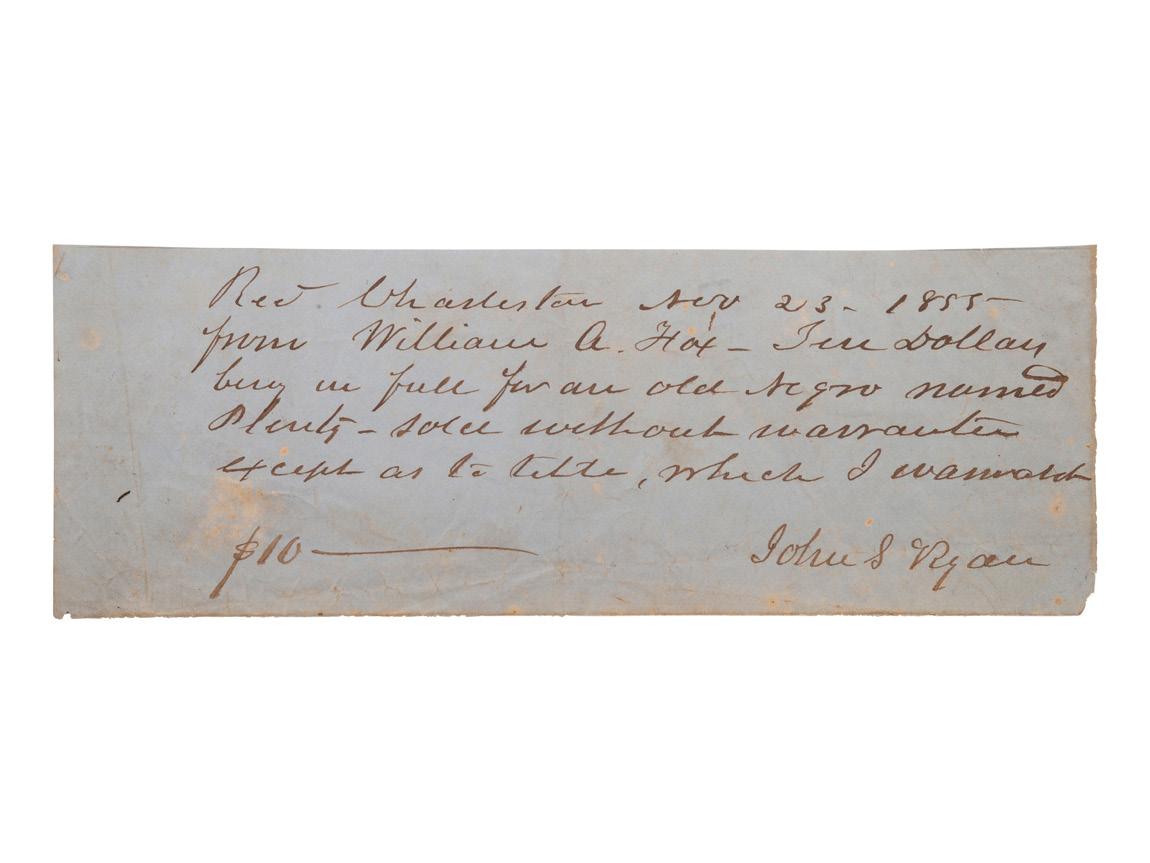 Recd Charleston Nov 23 - 1855
from William A. Fox - Ten Dollars
being in full for an old Negro named
Plenty - sold without warrantee
except as to title, which I warrant
$10 John S Ryan